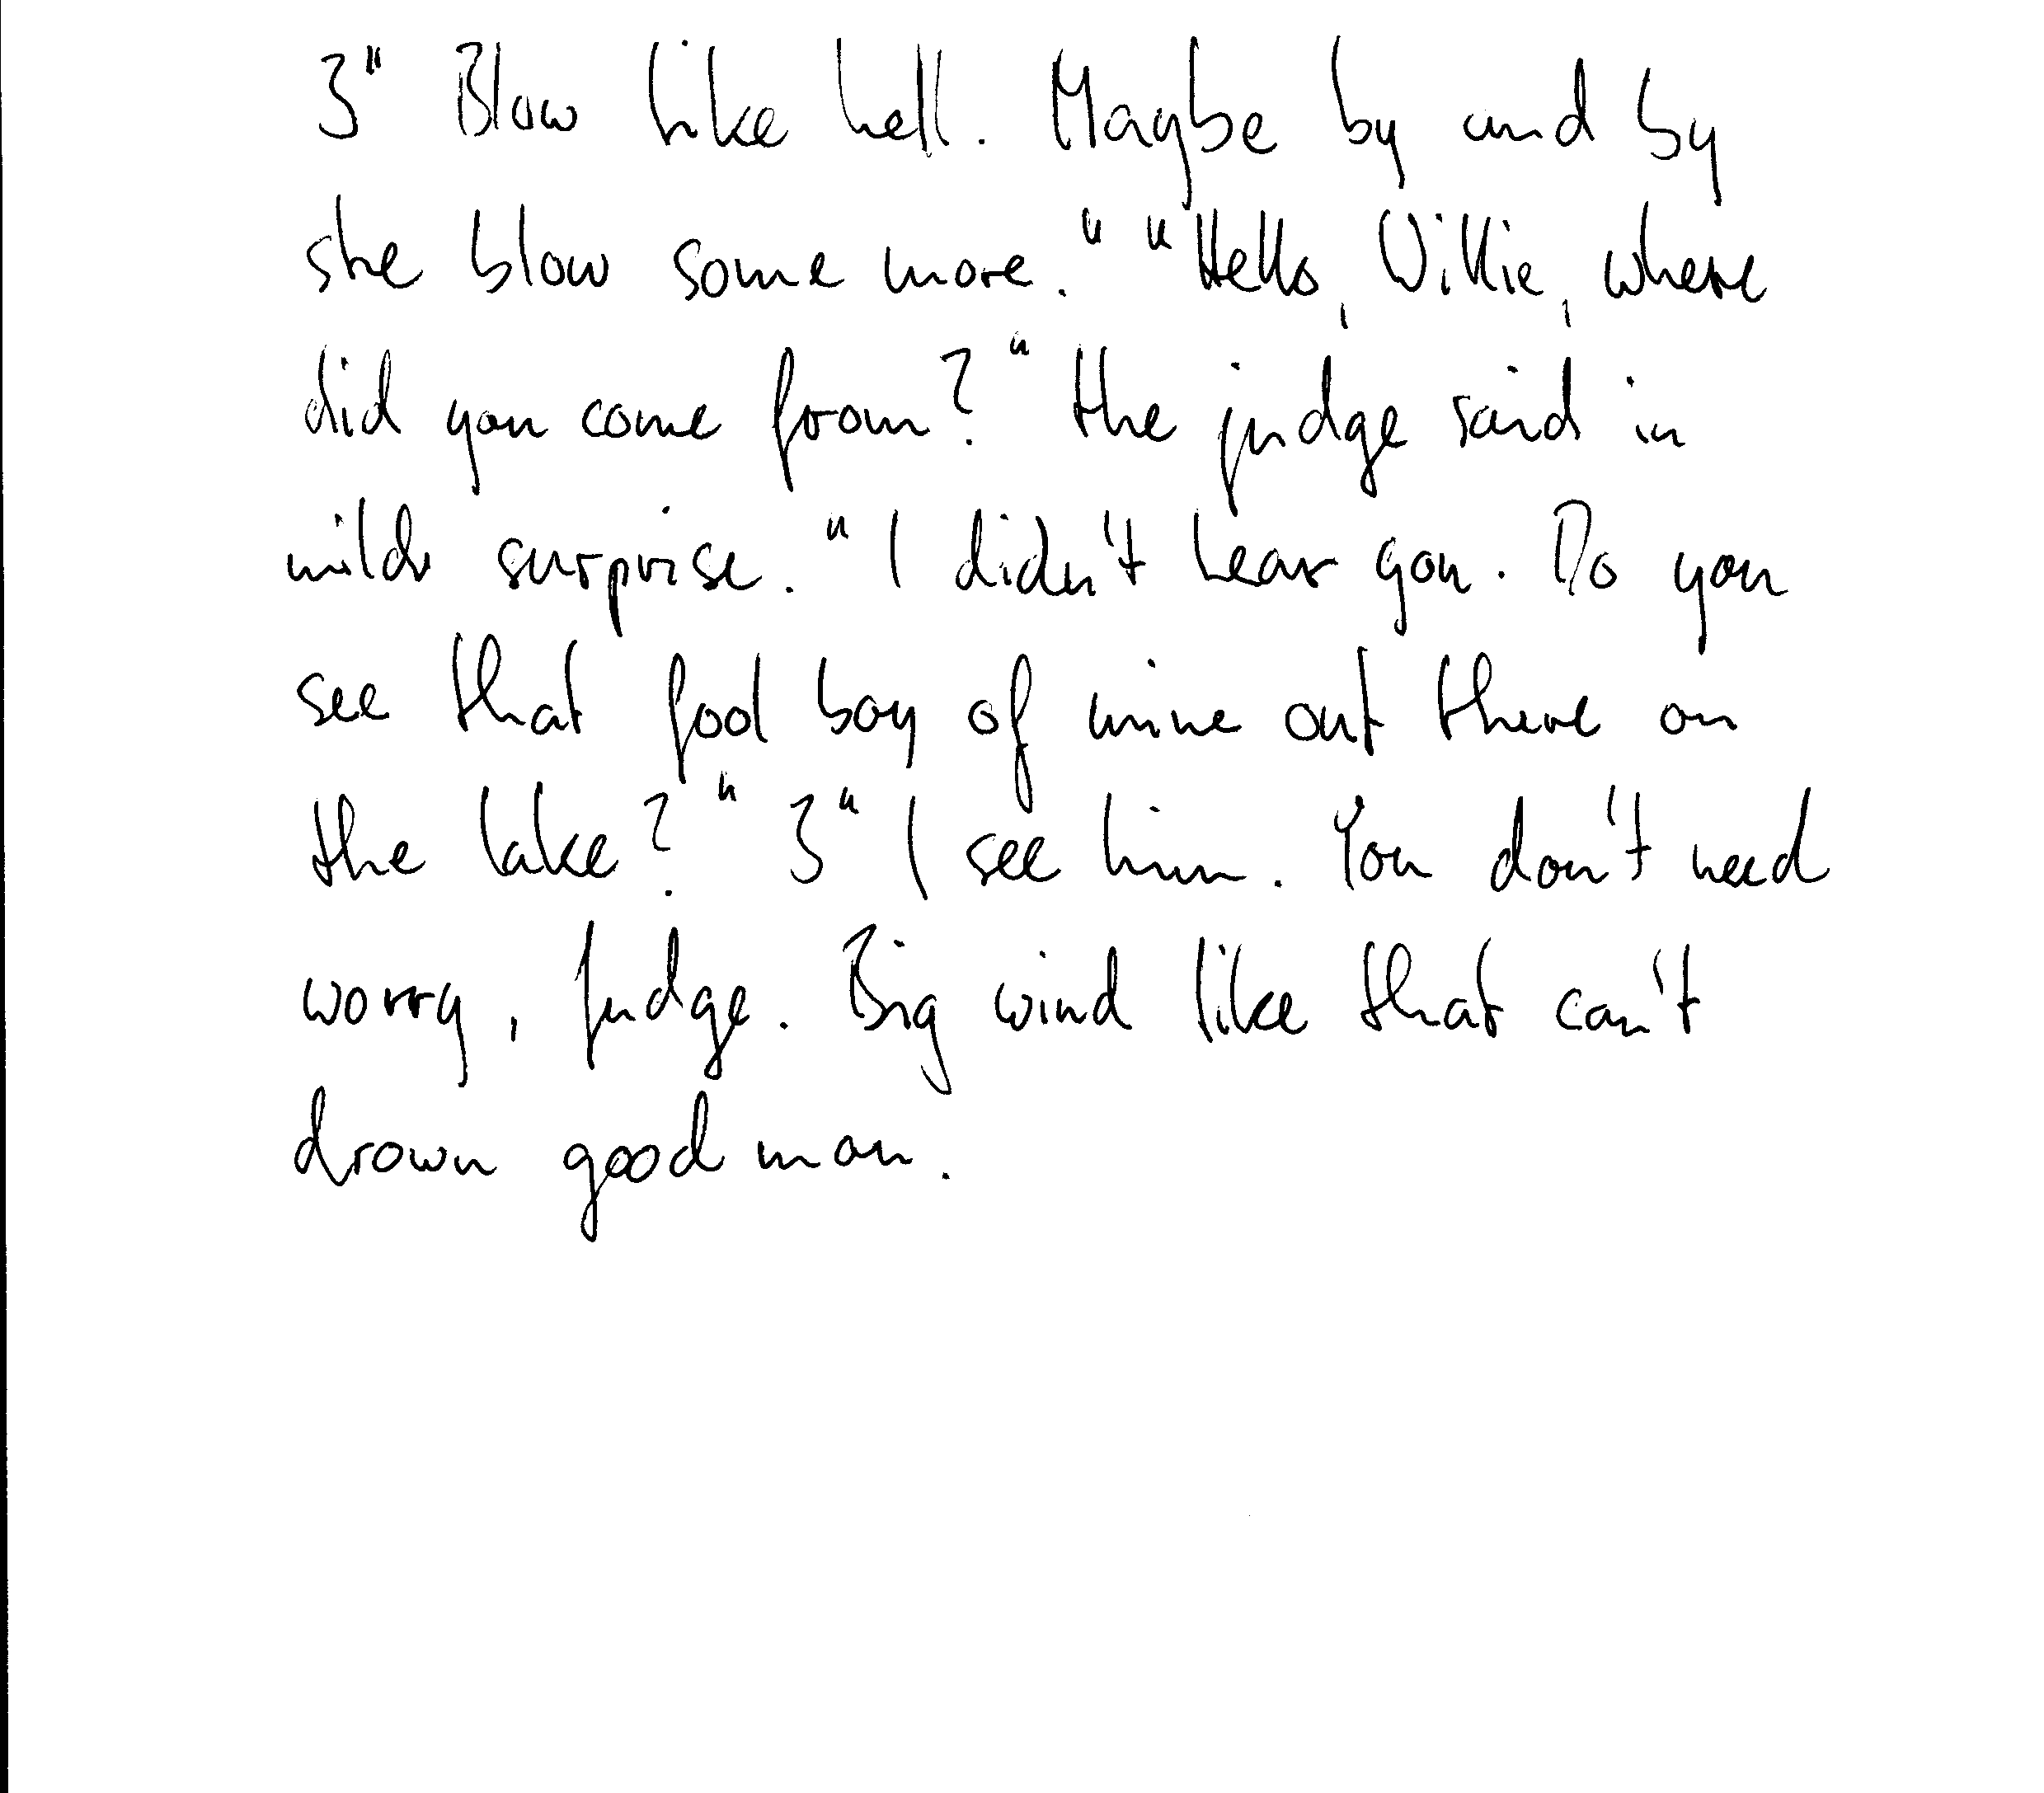 3" Blow like hell. Maybe by and by
she blow some more." "Hello, Willie, where
did you come from?" the judge said in
mild surprise. "I didn't hear you. Do you
see that fool boy of mine out there on
the lake?" 3" I see him. You don't need
worry, judge. Big wind like that can't
drown good man.